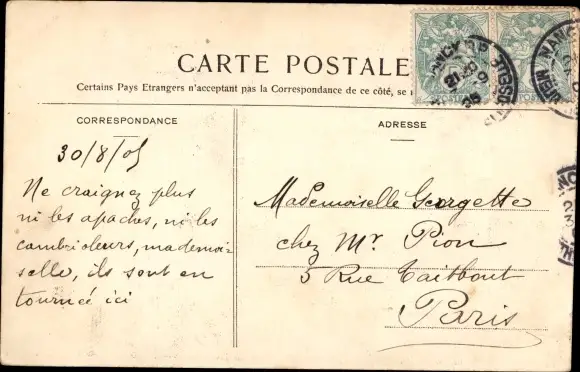 CARTE POSTALE
Certains Pays Etrangers n'acceptant pas la Correspondance de ce côté, se
CORRESPONDANCE
30/8/05
Ne craignez plus
ni les apaches, ni les
cambrioleurs, mademoi-
selle, ils sont en
tournée ici
ADRESSE
Mademoiselle Georgette
chez Mr. Pion
5 Rue Taitbout
Paris